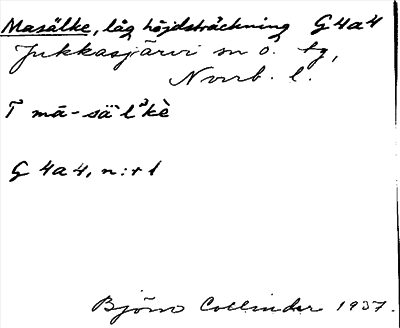 Masälke, låg höjdsträckning G 4a4
Jukkasjärvi sn o. tg,
Norrb. l.
T mā-sä̀lˀkè
G 4a4, n:r 1
Björn Collinder 1937.